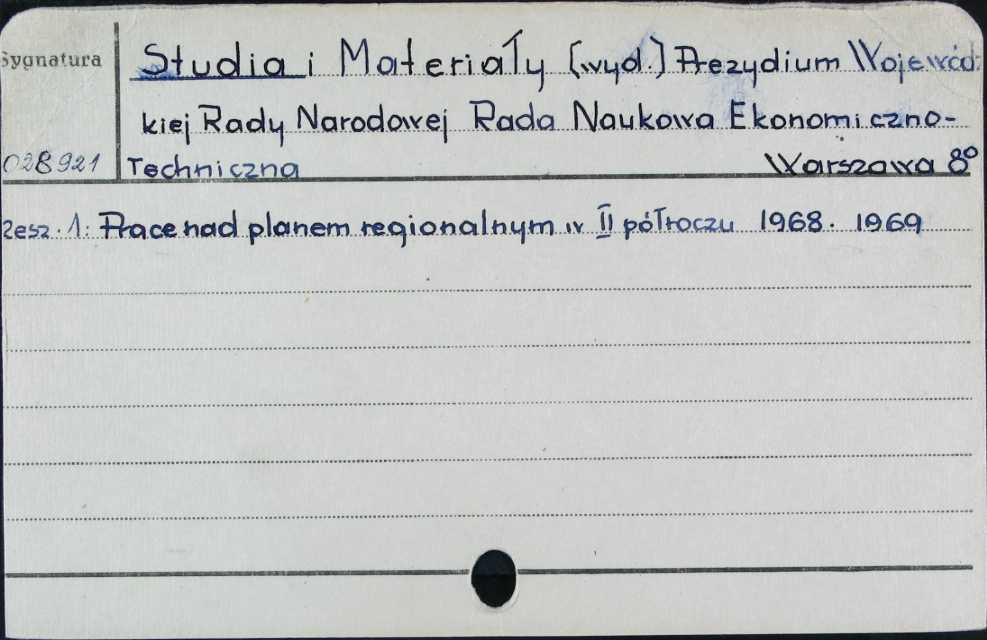 Sygnatura
Studia i Materiały (wyd.) Prezydium Wojewódz-
kiej Rady Narodowej Rada Naukowa Ekonomiczno-
028921 Techniczna Warszawa 8°
Zesz. 1: Prace nad planem regionalnym w II półroczu 1968. 1969